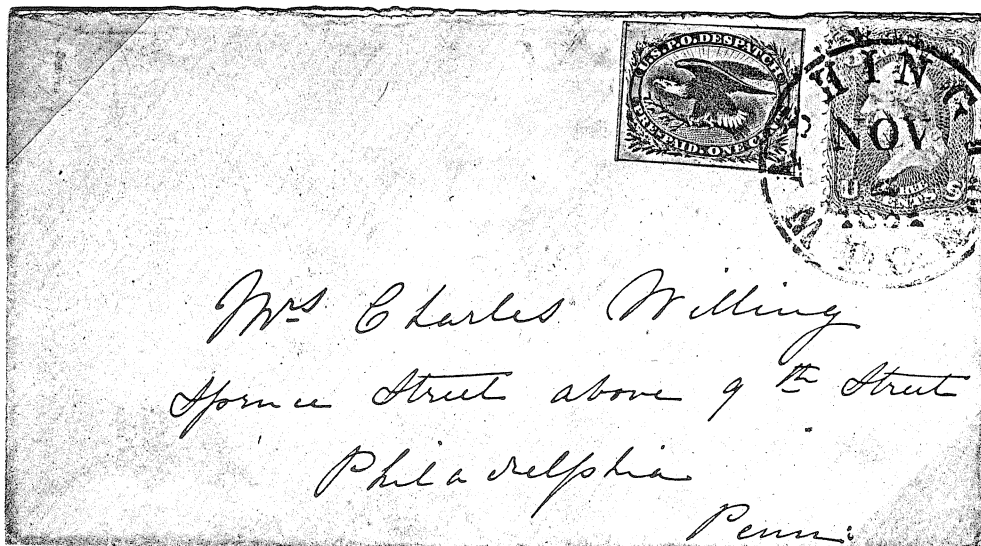 U.S.P.O. DESPATCH
PRE-PAID. ONE CENT
WASHINGTON
NOV
D.C.
U S
CENTS.
Mrs Charles Willing
Spruce Street above 9th Street
Philadelphia
Penn: